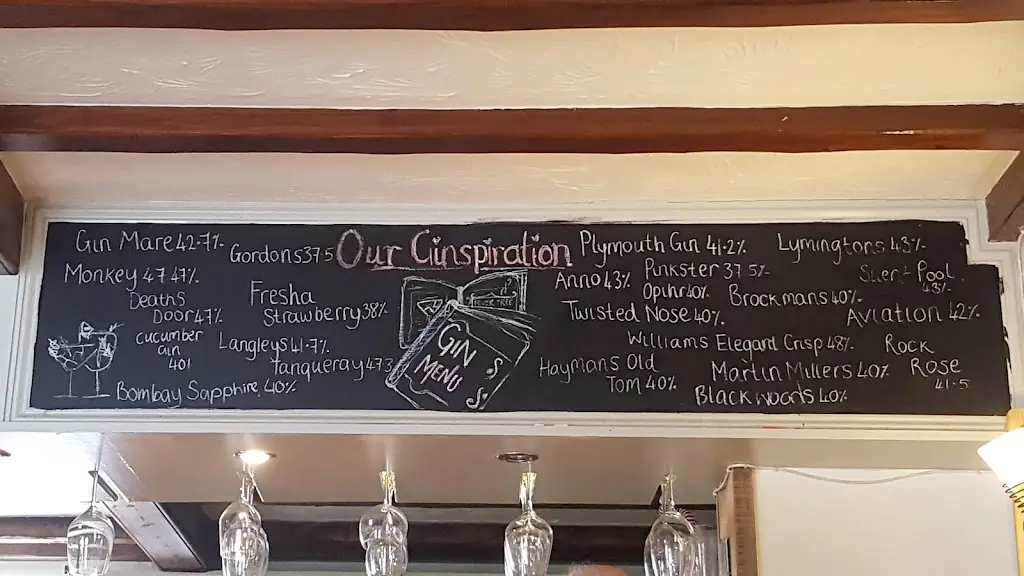 Our Ginspiration
Gin Mare 42.7%
Gordons 37.5
Monkey 47 47%
Deaths
Door 47%
Fresha
Strawberry 38%
cucumber
Gin
401
Langleys 41.7%
Tanqueray 473
Bombay Sapphire 40%
FEVER TREE
GIN
MENU
Plymouth Gin 41.2%
Lymingtons 43%
Anno 43%
Pinkster 37.5%
Opihr 40%
Brockmans 40%
Silent Pool
43%
Twisted Nose 40%
Aviation 42%
Williams Elegant Crisp 48%
Rock
Rose
41.5
Haymans Old
Tom 40%
Martin Millers 40%
Blackwoods 40%